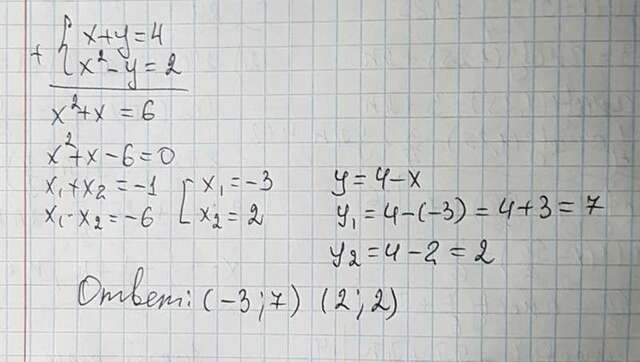 + { x+y=4
x²-y=2
x²+x=6
x²+x-6=0
x₁+x₂=-1 [ x₁=-3
x₁·x₂=-6 x₂=2
y=4-x
y₁=4-(-3)=4+3=7
y₂=4-2=2
Ответ: (-3;7) (2;2)